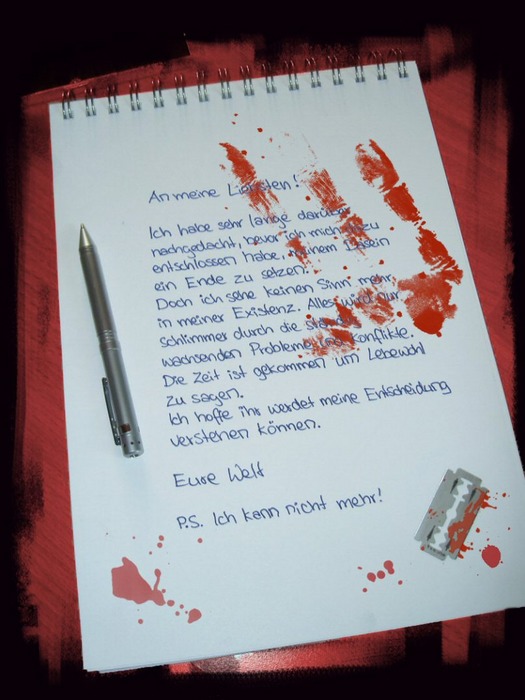 An meine Liebsten!
Ich habe sehr lange darüber
nachgedacht, bevor ich mich dazu
entschlossen habe, meinem Dasein
ein Ende zu setzen.
Doch ich sehe keinen Sinn mehr,
in meiner Existenz. Alles wird nur
schlimmer durch die ständig
wachsenden Probleme und Konflikte.
Die Zeit ist gekommen um Lebewohl
zu sagen.
Ich hoffe ihr werdet meine Entscheidung
verstehen können.
Eure Welt
P.S. Ich kann nicht mehr!